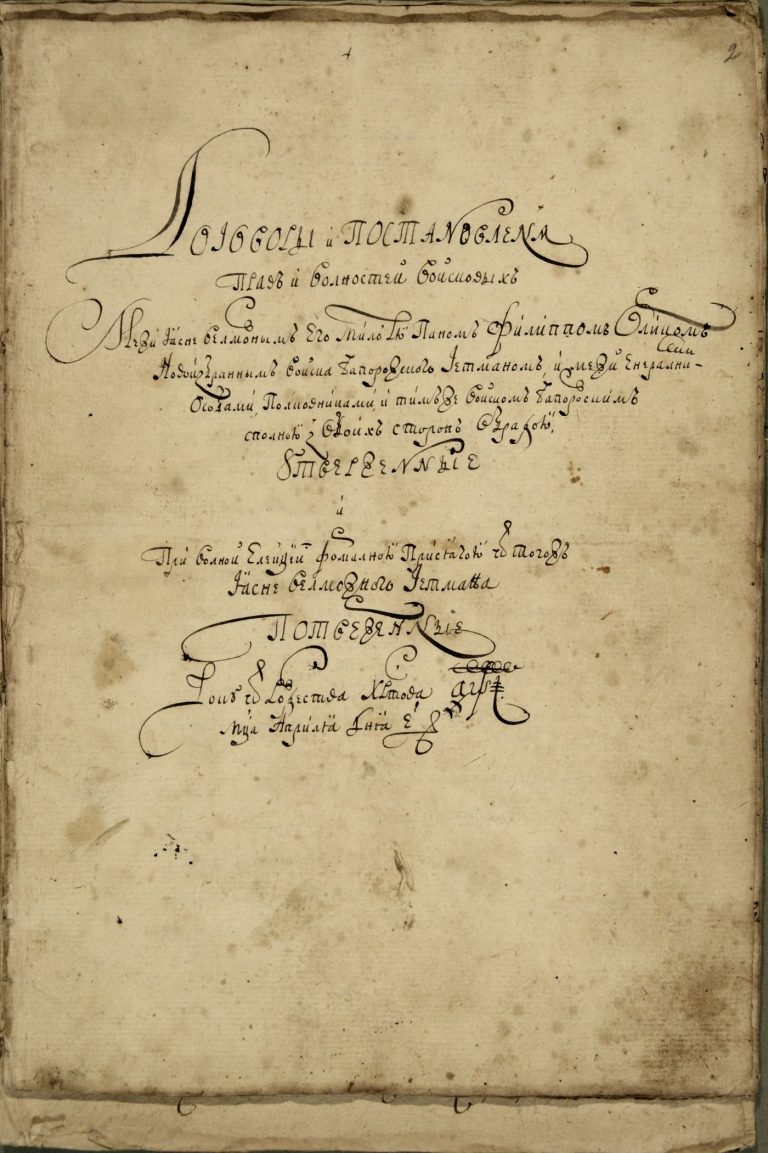 2
Договоры и Постановленя
Правъ и волностей войсковыхъ
Межи Ясне велможнымъ Его милостю Паномъ Филіппомъ Орликомъ
Новоизбраннымъ войска Запорожского Гетманомъ, и межи Енерални-
ми
Особами, Полковниками, и тимъже войскомъ Запорозскимъ
сполною з обоихъ сторонъ обрадою,
Утверженные
и
При волной Елекцей формалною Присягою ѿ тогожъ
Ясне велможного Гетмана
Потверженные
Року ѿ Рождества Христова ҂аѱі
мца Априля дня е҃